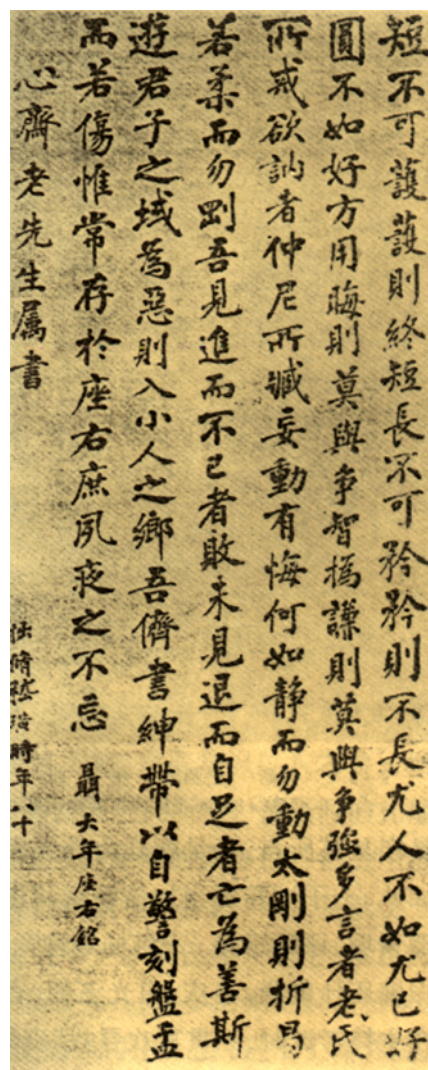 短不可護護則終短長不可矜矜則不長尤人不如尤己好
圓不如好方用晦則莫與爭智撝謙則莫與爭強多言者老氏
所戒欲訥者仲尼所臧妄動有悔何如静而勿動太剛則折曷
若柔而勿剛吾見進而不已者敗未見退而自足者亡為善斯
遊君子之域為惡則入小人之鄉吾儕書紳帶以自警刻盤盂
而若傷惟常存於座右庶夙夜之不忘 聶大年座右銘
心齋老先生属書
拙脩嵇璜時年八十